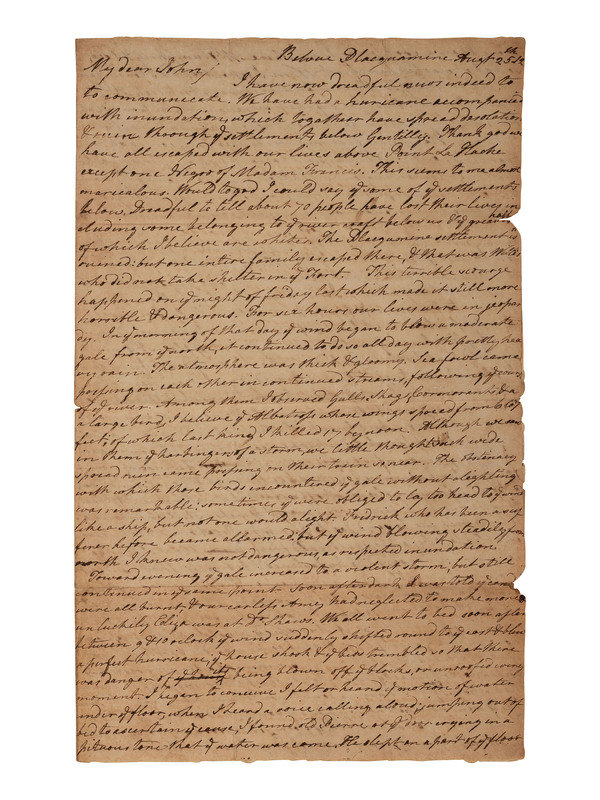 Below Placquamine Augt 25th
My dear John,
I have now dreadful news indeed to
to communecate. We have had a huricane accompanied
with inundation, which togathear have spread dasolation
& ruin through ye settlements below Gentilly. Thank god we
have all escaped with our lives above Point La Hache
except one Negro of Madam Francis. This seems to me almost
maricalous. Would to god I could say ye same of ye settlements
below. Dreadful to tell about 70 people have lost their lives in
cluding some belonging to ye river craft below us & ye greater
of which I believe are whites. The Placquamine settlement is
ruened: but one intire family escaped there, & that was
who did not take shelter in ye Fort. This terrible scourge
happened on ye night of friday last which made it still more
horrible & dangerous. For six hours our lives were in jeopar
dy. In ye morning of that day ye wind began to blow a moderate
gale from ye north, it continued to do so all day with prettly hea
vy rain. The atmosphere was thick & gloomy. Sea fowl came
pressing on each other in continued streams, following ye course
of ye river. Among them I observed Gulls, Shags, Cormorants, & a
a large bird, I believe ye Albatross whose wings spread from 6 to 7
feet; of which last kind I killed 17 by noon. Although we saw
in them ye harbingers of a storm, we little thought such wide
spread ruin came pressing on their train so near. The obstenacy
with which these birds incountered ye gale without alighting
was remarkable: sometimes ye were obliged to lay too head to ye wind
like a ship, but not one would alight. Fredrick who has been a suf
ferer before became allarmed, but ye wind blowing steadily from
north I knew was not dangerous, as respected inundation.
Toward evening ye gale increased to a violent storm, but still
continued in ye same point. Soon after dark I was told ye candles
were all burnt, & our carless Amey had neglected to make more
unluckily Eliza was at Dr Shaws. We all went to bed soon after
between 9 & 10 oclock ye wind suddenly shifted round to ye east & blew
a perfect hurricane, ye house shook & ye beds trembled so that there
was danger of being blown off ye blocks, or unroofed every
moment. I began to conceive I felt or heard ye motion of water
under ye floor, when I heard a voice calling aloud; jumping out of
bed to ascertain ye cause, I found old Pierre at ye door crying in a
pituous tone that ye water was come. He slept on a part of ye floor